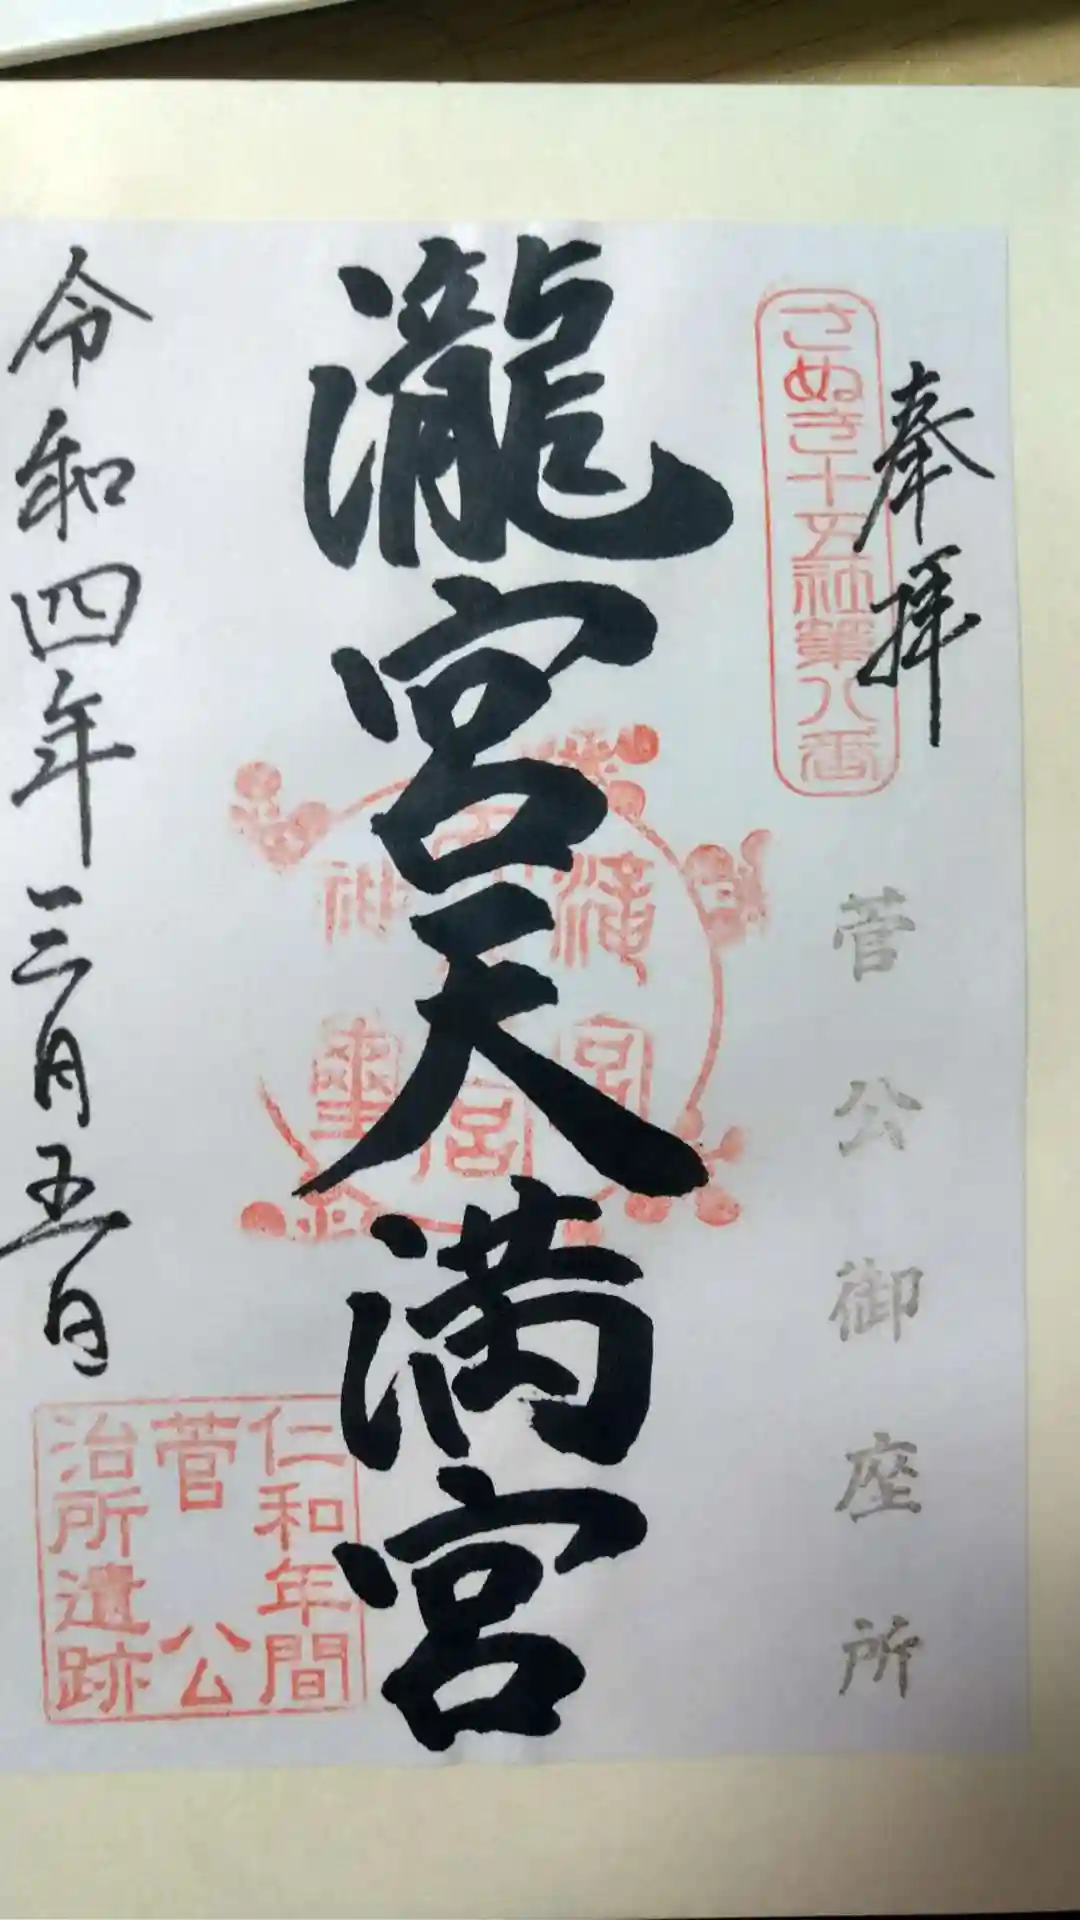 奉拝
さぬき十五社第八番
菅公御座所
瀧宮天満宮
滝宮
天
宮
神璽
令和四年三月五日
仁和年間
菅公
治所遺跡